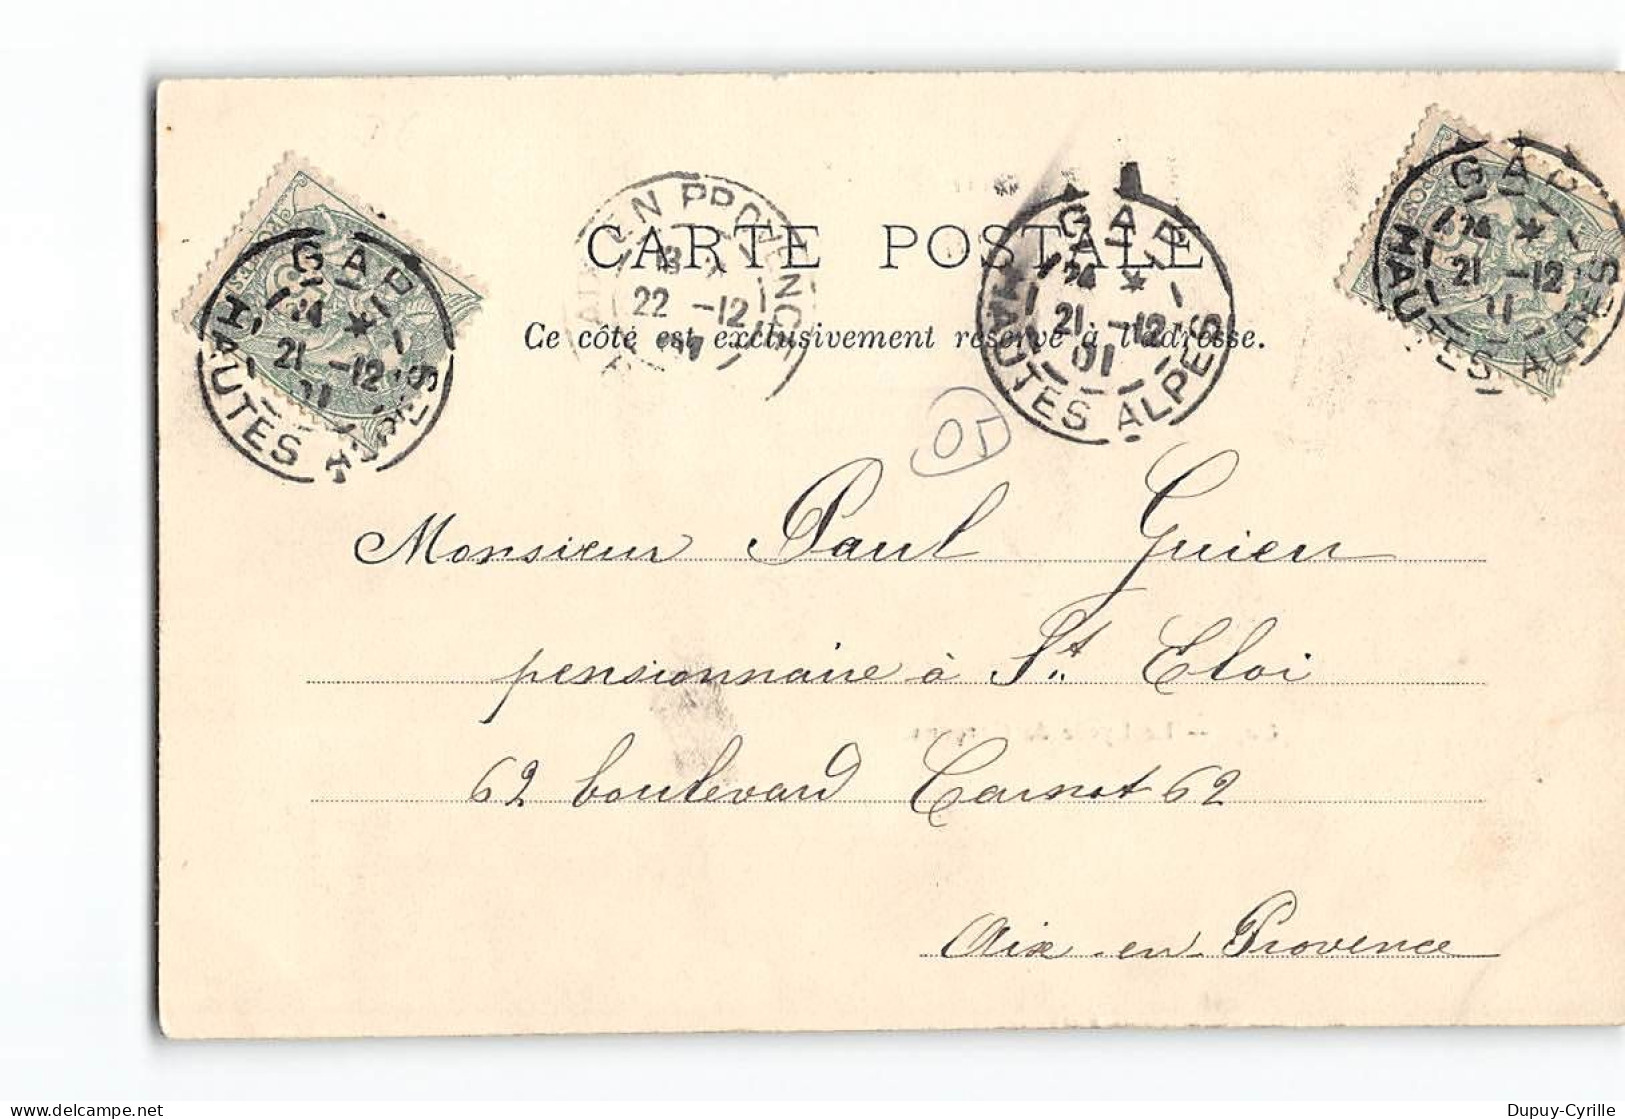 CARTE POSTALE
Ce côté est exclusivement réservé à l'adresse.
GAP
24 *
21 -12
01
HAUTES ALPES
EN PROVENCE
22 -12
GAP
24 *
21 -12
01
HAUTES ALPES
GAP
24 *
21 -12
HAUTES ALPES
05
Monsieur Paul Guieu
pensionnaire à St. Eloi
62 boulevard Carnot 62
Aix-en-Provence
Dupuy-Cyrille